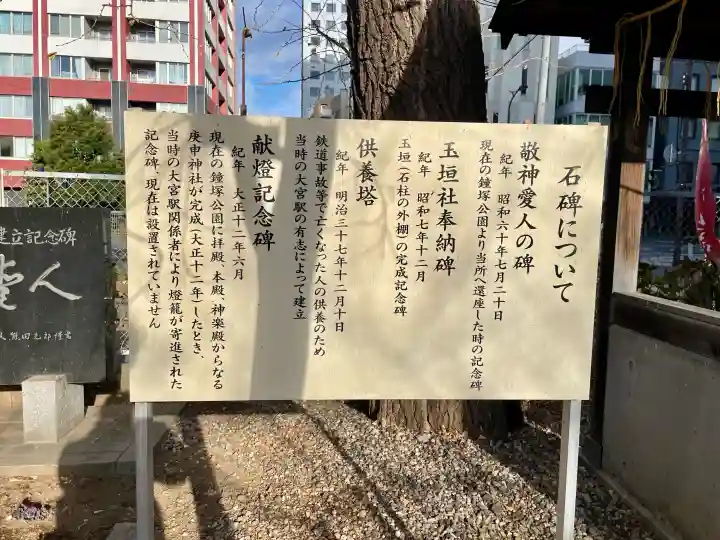 石碑について
敬神愛人の碑
紀年　昭和六十年七月二十日
現在の鐘塚公園より当所へ還座した時の記念碑
玉垣社奉納碑
紀年　昭和七年十二月
玉垣（石柱の外棚）の完成記念碑
供養塔
紀年　明治三十七年十二月十日
鉄道事故等で亡くなった人の供養のため
当時の大宮駅の有志によって建立
献燈記念碑
紀年　大正十二年六月
現在の鐘塚公園に拝殿、本殿、神楽殿からなる
庚申神社が完成（大正十二年）したとき、
当時の大宮駅関係者により燈籠が寄進された
記念碑、現在は設置されていません
建立記念碑
愛人